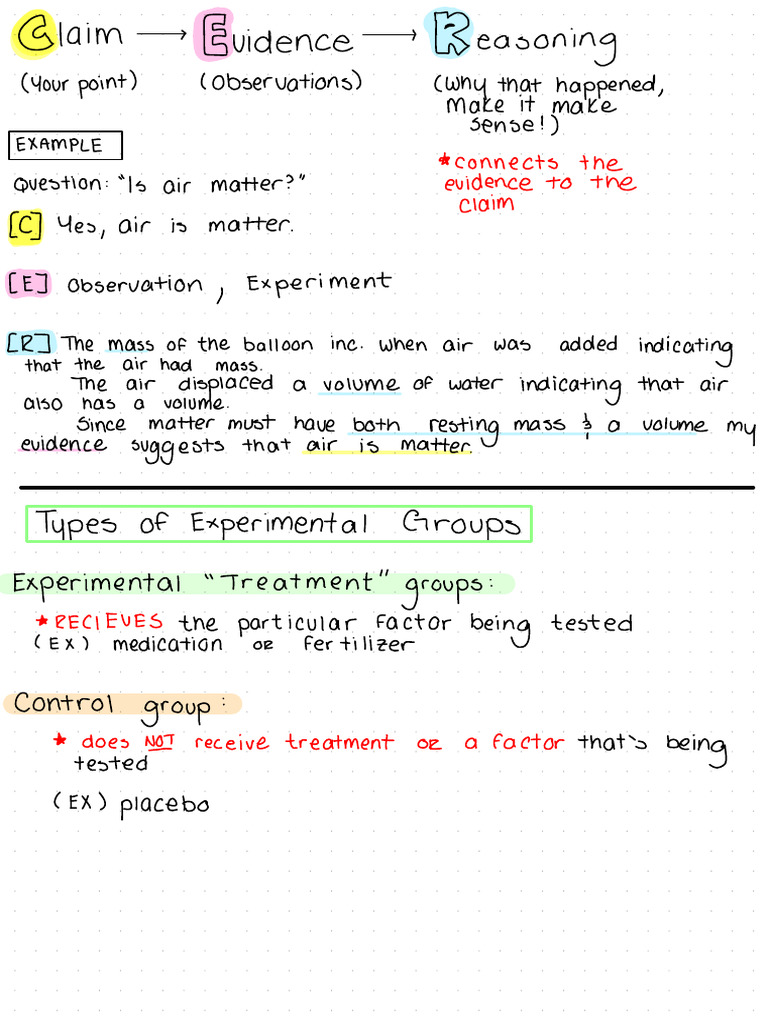 Claim → Evidence → Reasoning
(Your point) (Observations) (Why that happened,
make it make
sense!)
EXAMPLE
*connects the
Question: "Is air matter?"
evidence to the
claim
[C] Yes, air is matter.
[E] Observation, Experiment
[R] The mass of the balloon inc. when air was added indicating
that the air had mass.
The air displaced a volume of water indicating that air
also has a volume.
Since matter must have both resting mass & a volume my
evidence suggests that air is matter.
Types of Experimental Groups
Experimental "Treatment" groups:
* RECIEVES the particular factor being tested
(EX) medication or fertilizer
Control group:
* does NOT receive treatment or a factor that's being
tested
(EX) placebo